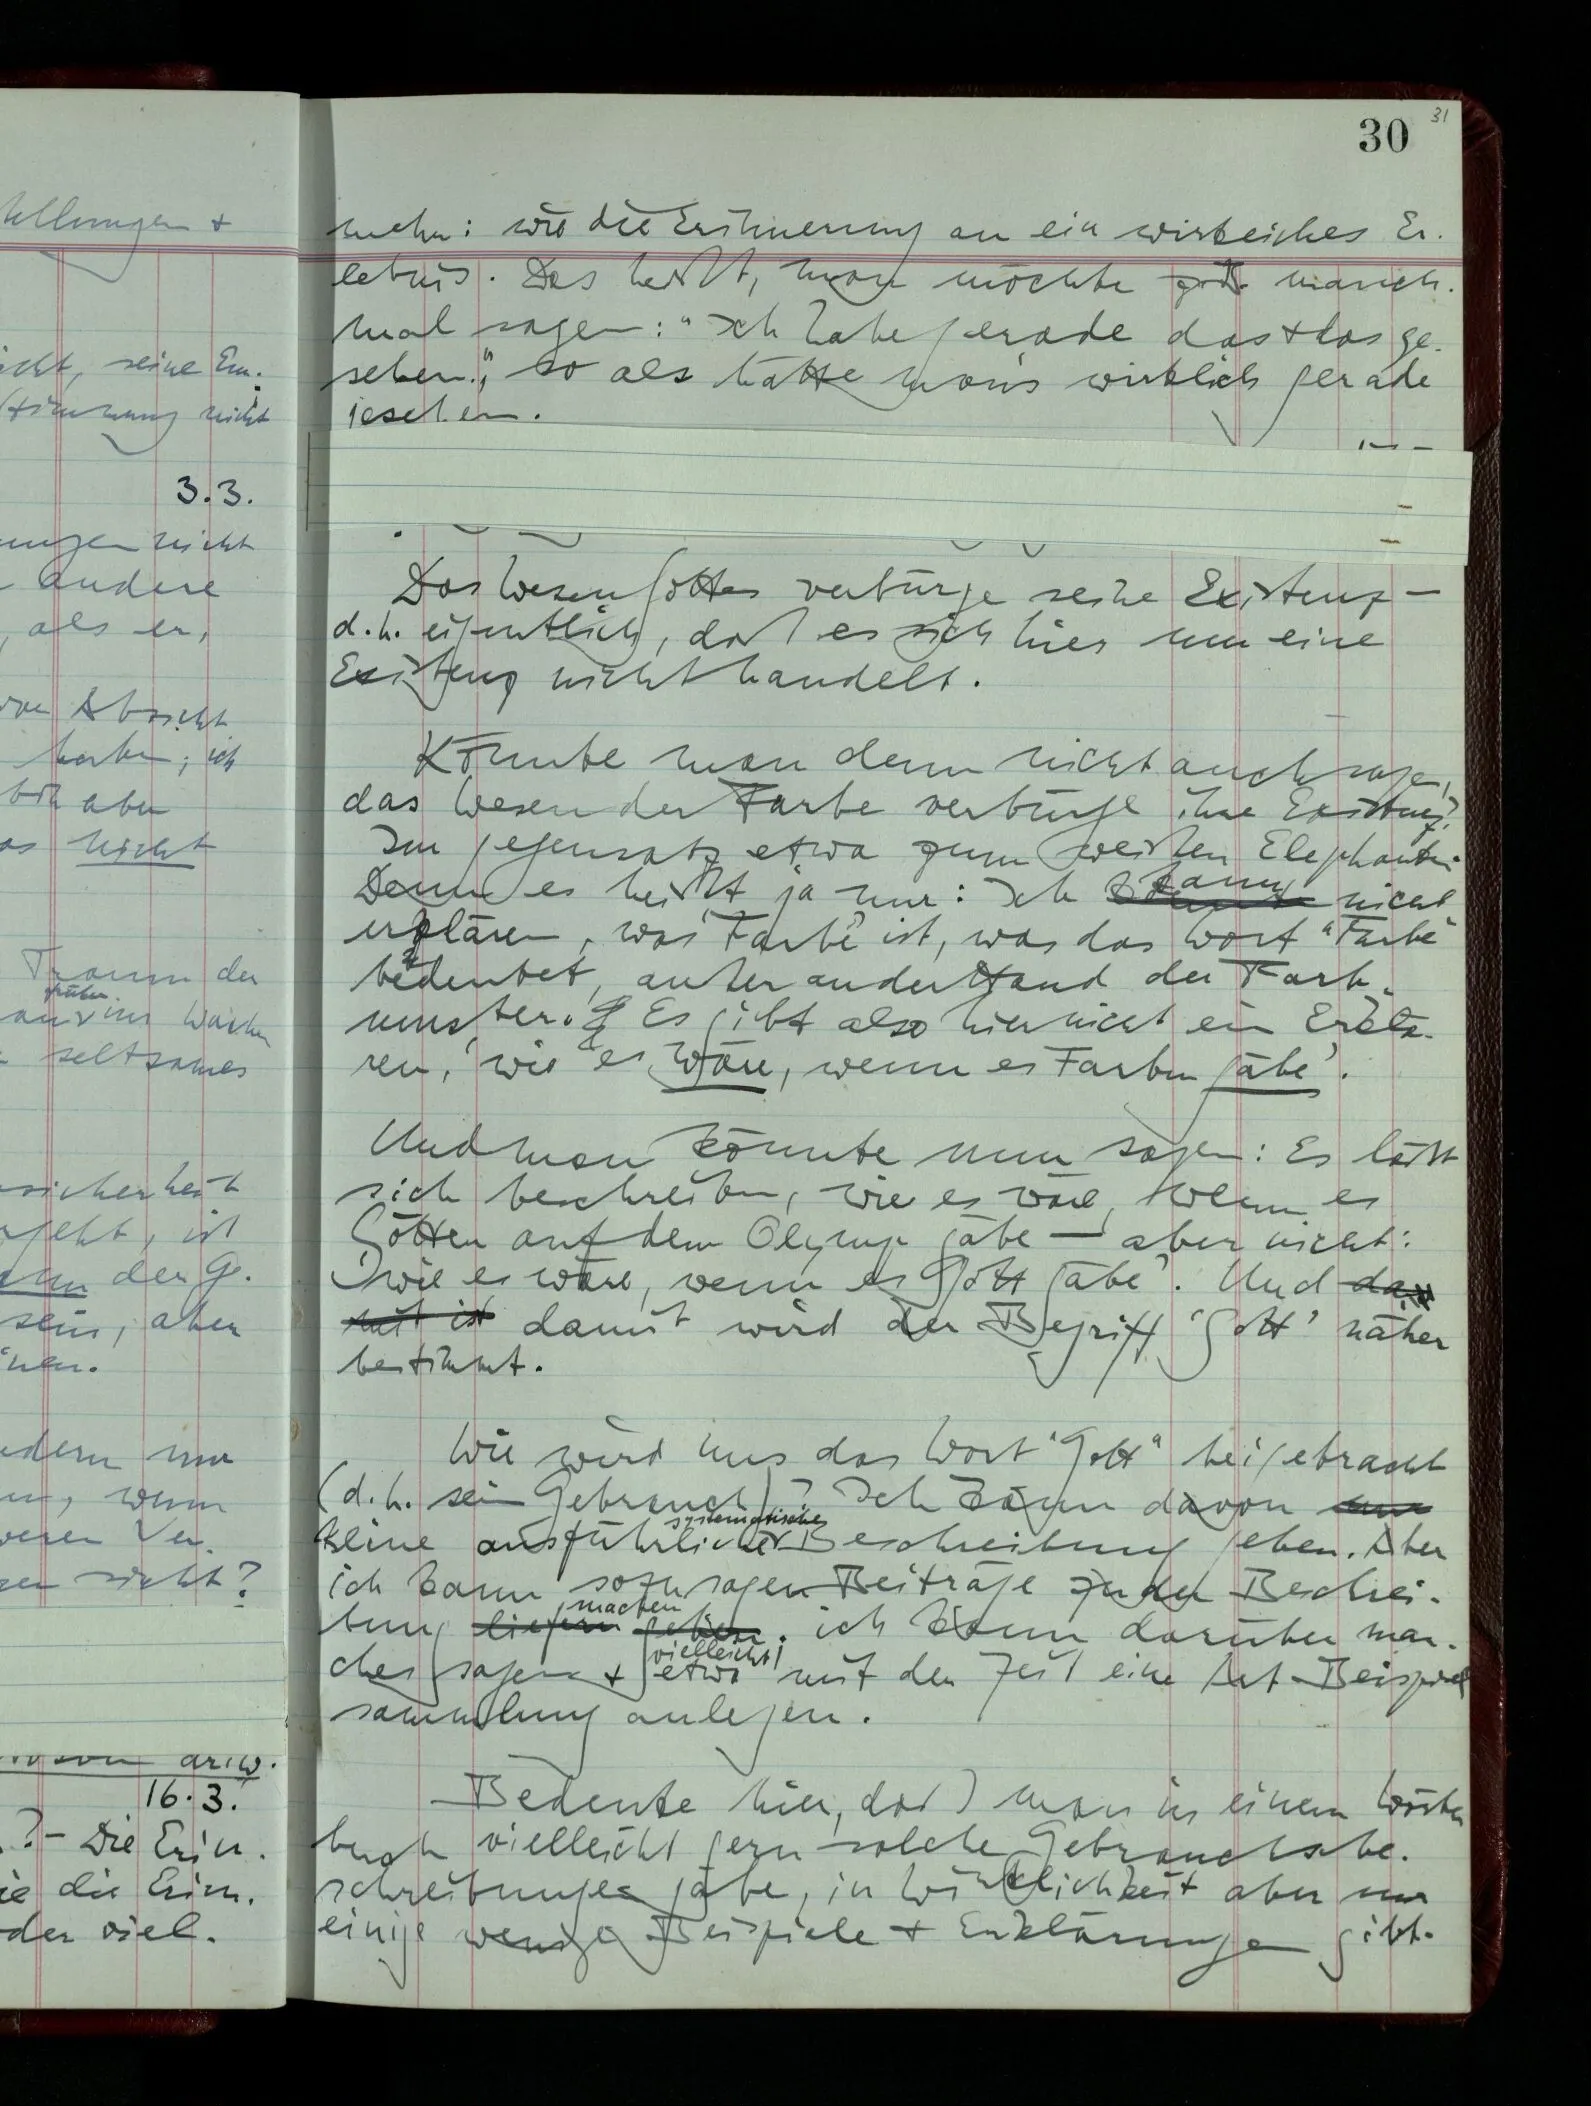 tellungen +
icht, seine Em.
stimmung nicht
3.3.
ungen nicht
andere
, als er,
von Absicht
; ich
bin aber
as nicht
Traum der
früher
aus ins Wachen
seltsames
sicherheit
geht, ist
der Ge.
sein, aber
nen.
ndern nur
en, wenn
weren Ver.
gen nicht?
16.3.
?– Die Erin.
ie die Erin.
der viel.
30
31
suche: wie die Erinnerung an ein wirkliches Er.
lebnis. Das heißt, man möchte z.B. manch.
mal sagen: "Ich habe gerade das + das ge.
sehen.", so als hätte man's wirklich gerade
gesehen.
Das Wesen Gottes verbürge seine Existenz –
d.h. eigentlich, daß es sich hier um eine
Existenz nicht handelt.
Könnte man denn nicht auch sagen,
das Wesen der Farbe verbürge ihre Existenz?
Im Gegensatz etwa zum weißen Elephanten.
Denn es heißt ja nur: Ich könnte kann nicht
erklären, was 'Farbe' ist, was das Wort "Farbe"
bedeutet, außer an der Hand der Farb.
muster. Es gibt also hier nicht ein Erklä.
ren, 'wie es wäre, wenn es Farben gäbe'.
Und man könnte nun sagen: Es läßt
sich beschreiben, wie es wäre, wenn es
Götter auf dem Olymp gäbe – aber nicht:
'wie es wäre, wenn es Gott gäbe'. Und da
mit ist damit wird der Begriff 'Gott' näher
bestimmt.
Wie wird uns das Wort "Gott" beigebracht
(d.h. sein Gebrauch)? Ich kann davon
systematische
keine ausführliche Beschreibung geben. Aber
ich kann sozusagen Beiträge zu der Beschrei.
machen
bung liefern geben; ich kann darüber man.
vielleicht
ches sagen + etwa mit der Zeit eine Art Beispiel
sammlung anlegen.
Bedenke hier, daß man in einem Wörter
buch vielleicht gern solche Gebrauchsbe.
schreibungen gäbe, in Wirklichkeit aber nur
einige wenige Beispiele + Erklärungen gibt.